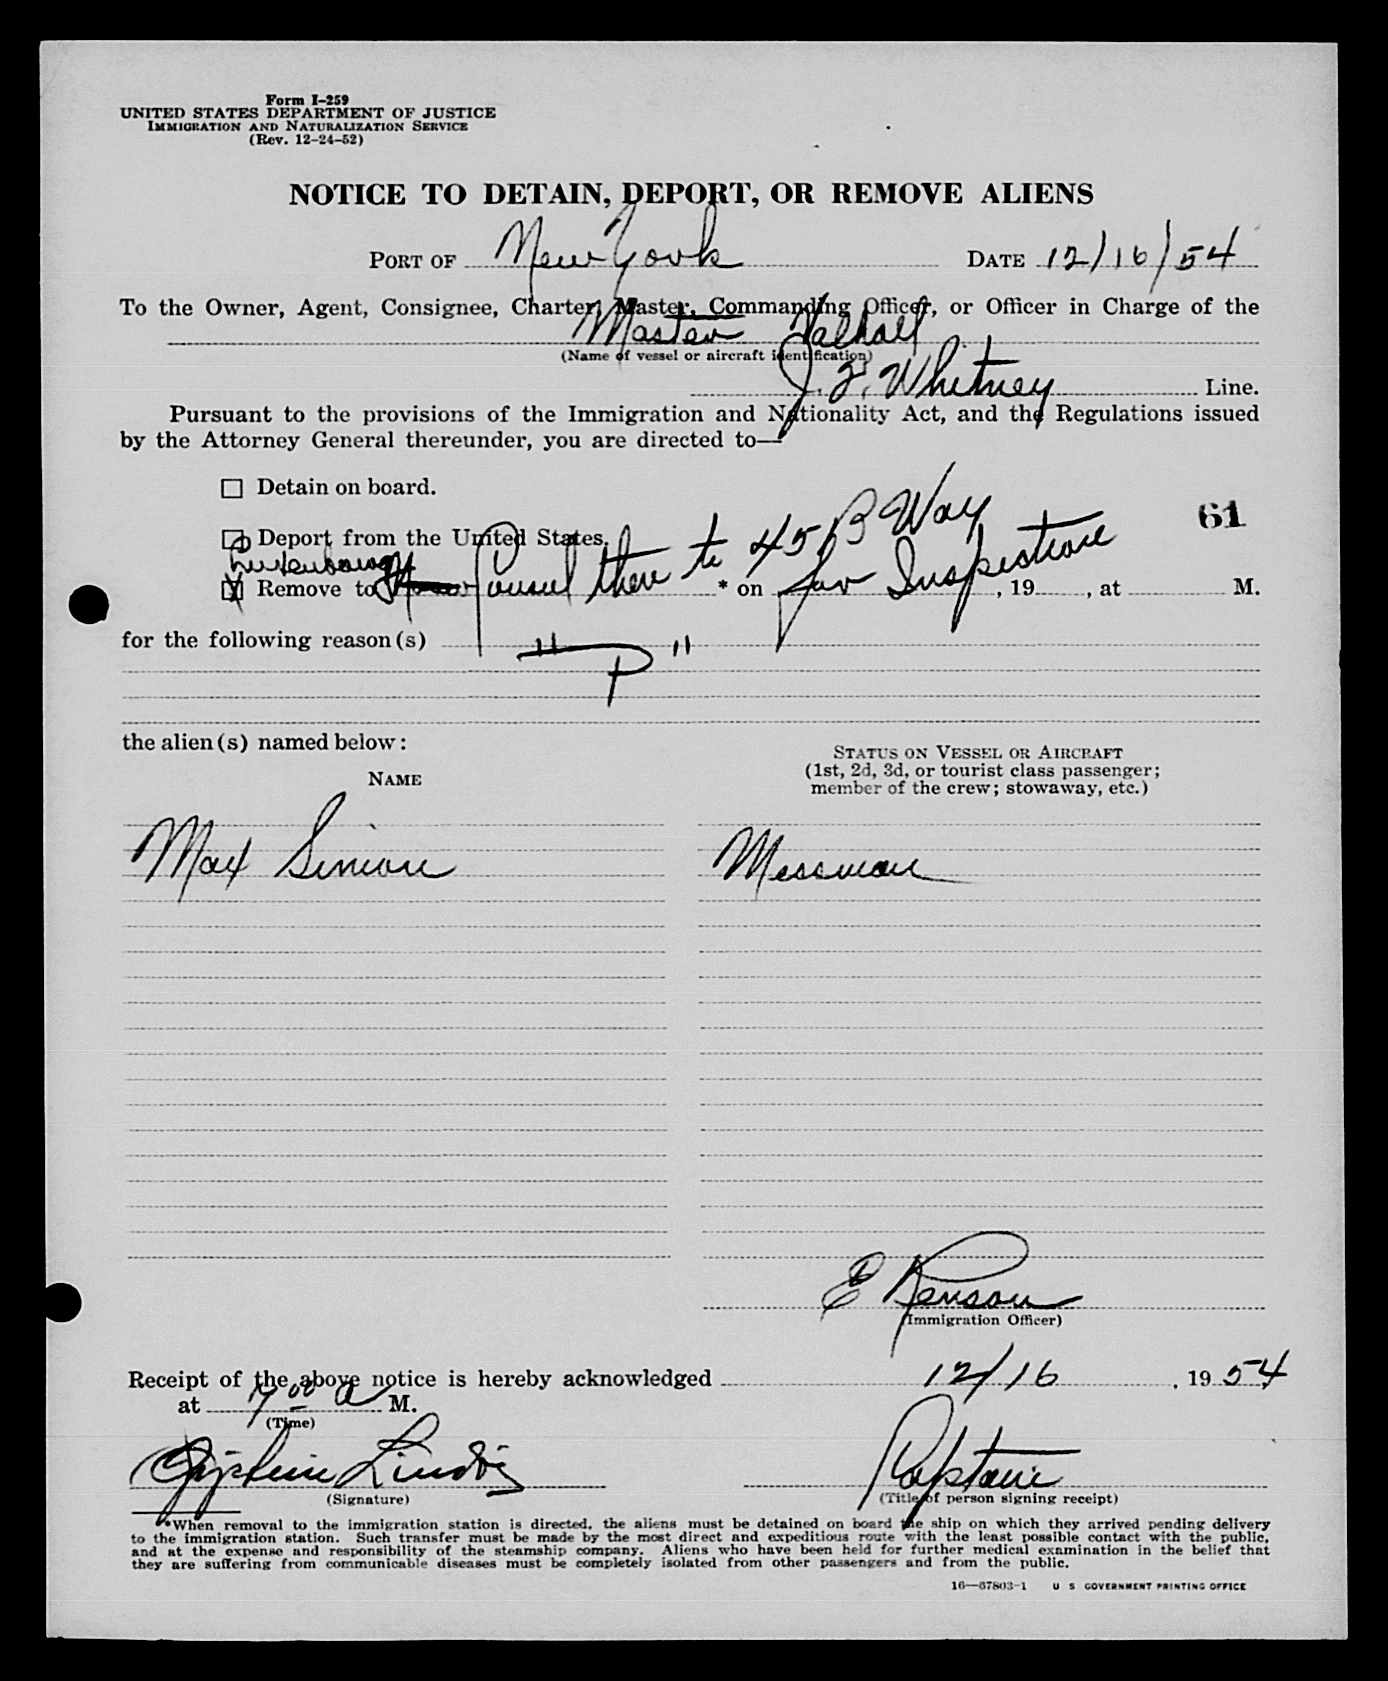 Form I-259
UNITED STATES DEPARTMENT OF JUSTICE
IMMIGRATION AND NATURALIZATION SERVICE
(Rev. 12-24-52)
NOTICE TO DETAIN, DEPORT, OR REMOVE ALIENS
PORT OF New York DATE 12/16/54
To the Owner, Agent, Consignee, Charter, Master, Commanding Officer, or Officer in Charge of the
Master Valhall
(Name of vessel or aircraft identification)
J. F. Whitney Line.
Pursuant to the provisions of the Immigration and Nationality Act, and the Regulations issued
by the Attorney General thereunder, you are directed to—
Detain on board.
61
Deport from the United States.
Luxenbourg
X Remove to Consul then to 45 B Way * on for Inspection, 19 , at M.
for the following reason(s) "P"
the alien(s) named below:
NAME
STATUS ON VESSEL OR AIRCRAFT
(1st, 2d, 3d, or tourist class passenger;
member of the crew; stowaway, etc.)
Max Simon Messman
E Renson
(Immigration Officer)
Receipt of the above notice is hereby acknowledged 12/16, 1954,
at M.
(Time)
Captain
(Signature) (Title of person signing receipt)
*When removal to the immigration station is directed, the aliens must be detained on board the ship on which they arrived pending delivery
to the immigration station. Such transfer must be made by the most direct and expeditious route with the least possible contact with the public,
and at the expense and responsibility of the steamship company. Aliens who have been held for further medical examination in the belief that
they are suffering from communicable diseases must be completely isolated from other passengers and from the public.
16—67803-1 U S GOVERNMENT PRINTING OFFICE